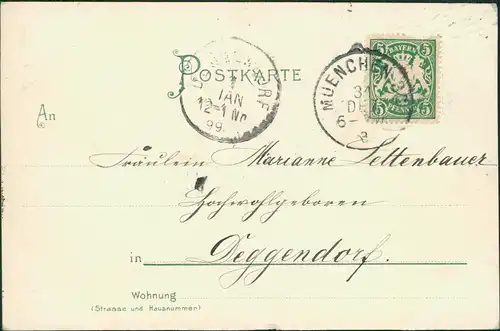 POSTKARTE
BAYERN
5 5
PFENNIG
MUENCHEN
31
DE
6-
8
DEGGENDORF
1
JAN
12-1 Nm
99
An
Fräulein Marianne Lettenbauer
Hochwohlgeboren
in Deggendorf.
Wohnung
(Strasse und Hausnummer)